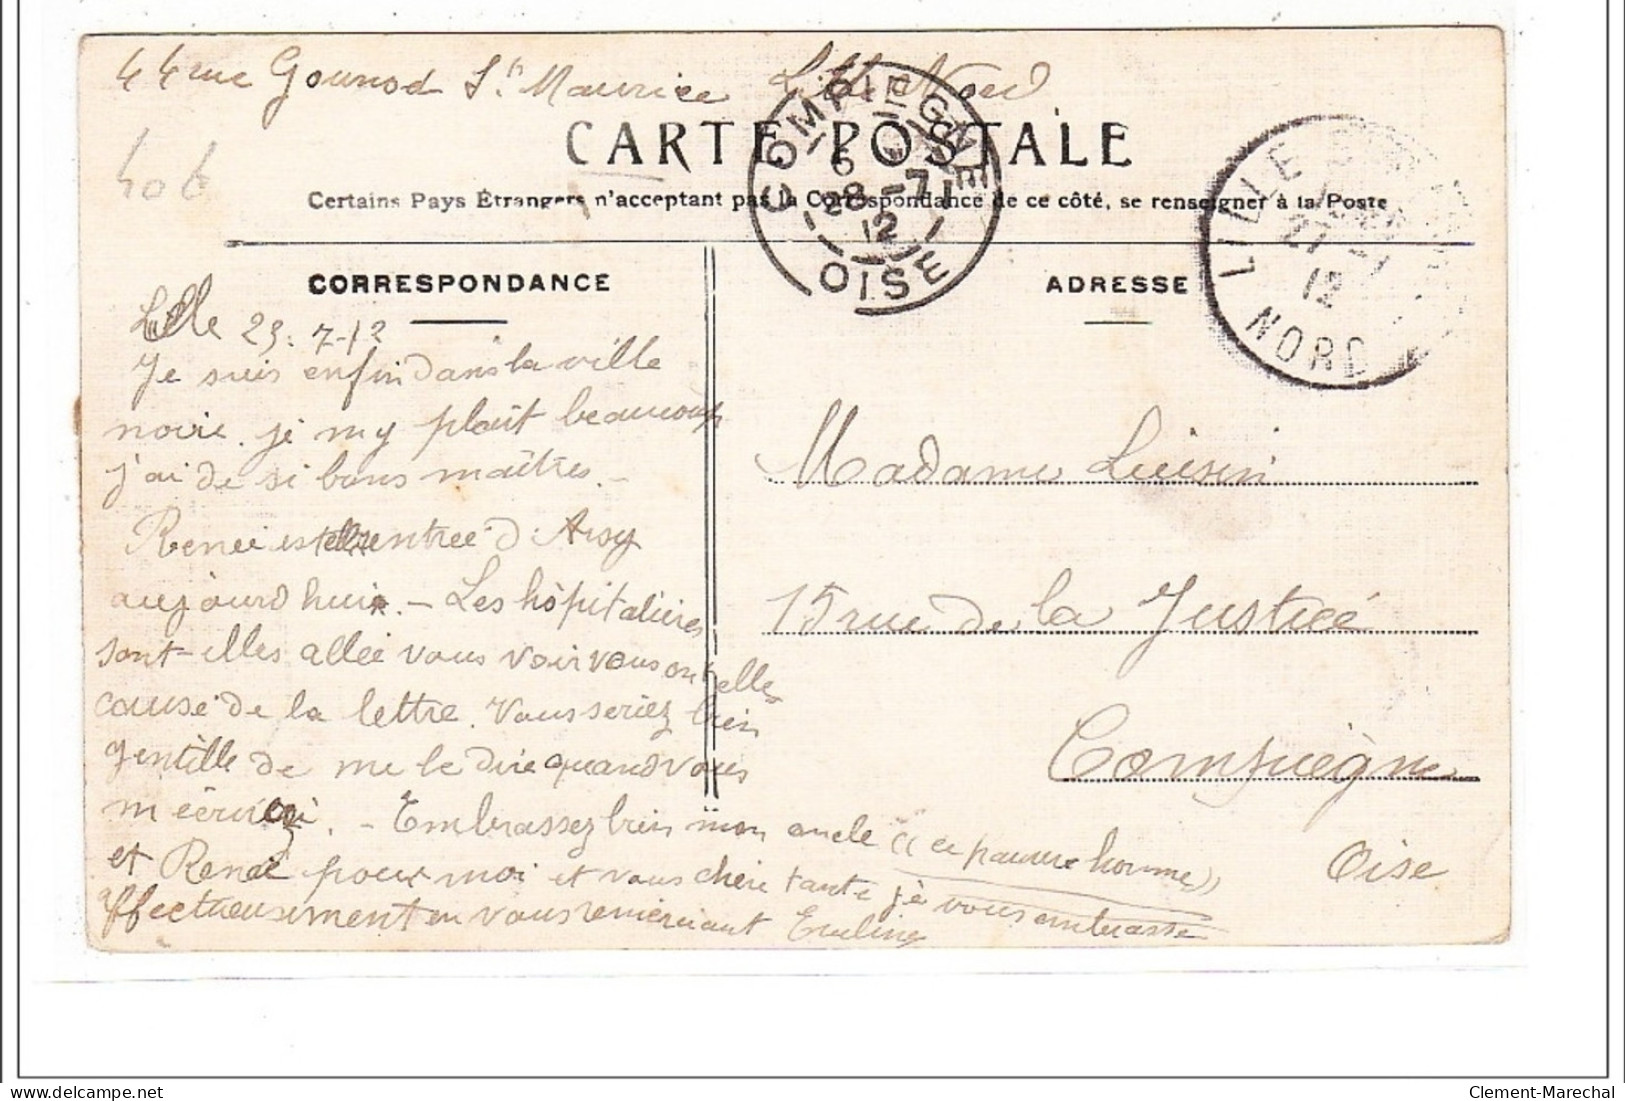 44 rue Gounod St Maurice Lille Nord
CARTE POSTALE
Certains Pays Étrangers n'acceptant pas la Correspondance de ce côté, se renseigner à la Poste
406
COMPIEGNE
6
28 -7
12
OISE
LILLE
27 -7
12
NORD
CORRESPONDANCE
ADRESSE
Lille 23. 7-12
Je suis enfin dans la ville
noire. je m y plait beaucoup
j'ai de si bons maîtres. -
Renée est rentrée d'Arsy
aujourd hui. - Les hôpitalières
sont-elles allée vous voir vous ont elles
cause de la lettre. Vous seriez bien
gentille de me le dire quand vous
m écrirez. - Embrassez bien mon oncle (( ce pauvre homme ))
et Renée pour moi et vous chère tante je vous embrasse
affectueusement en vous remerciant
Madame Luisin
15 rue de la Justice
Compiègne
Oise
Clement-Marechal